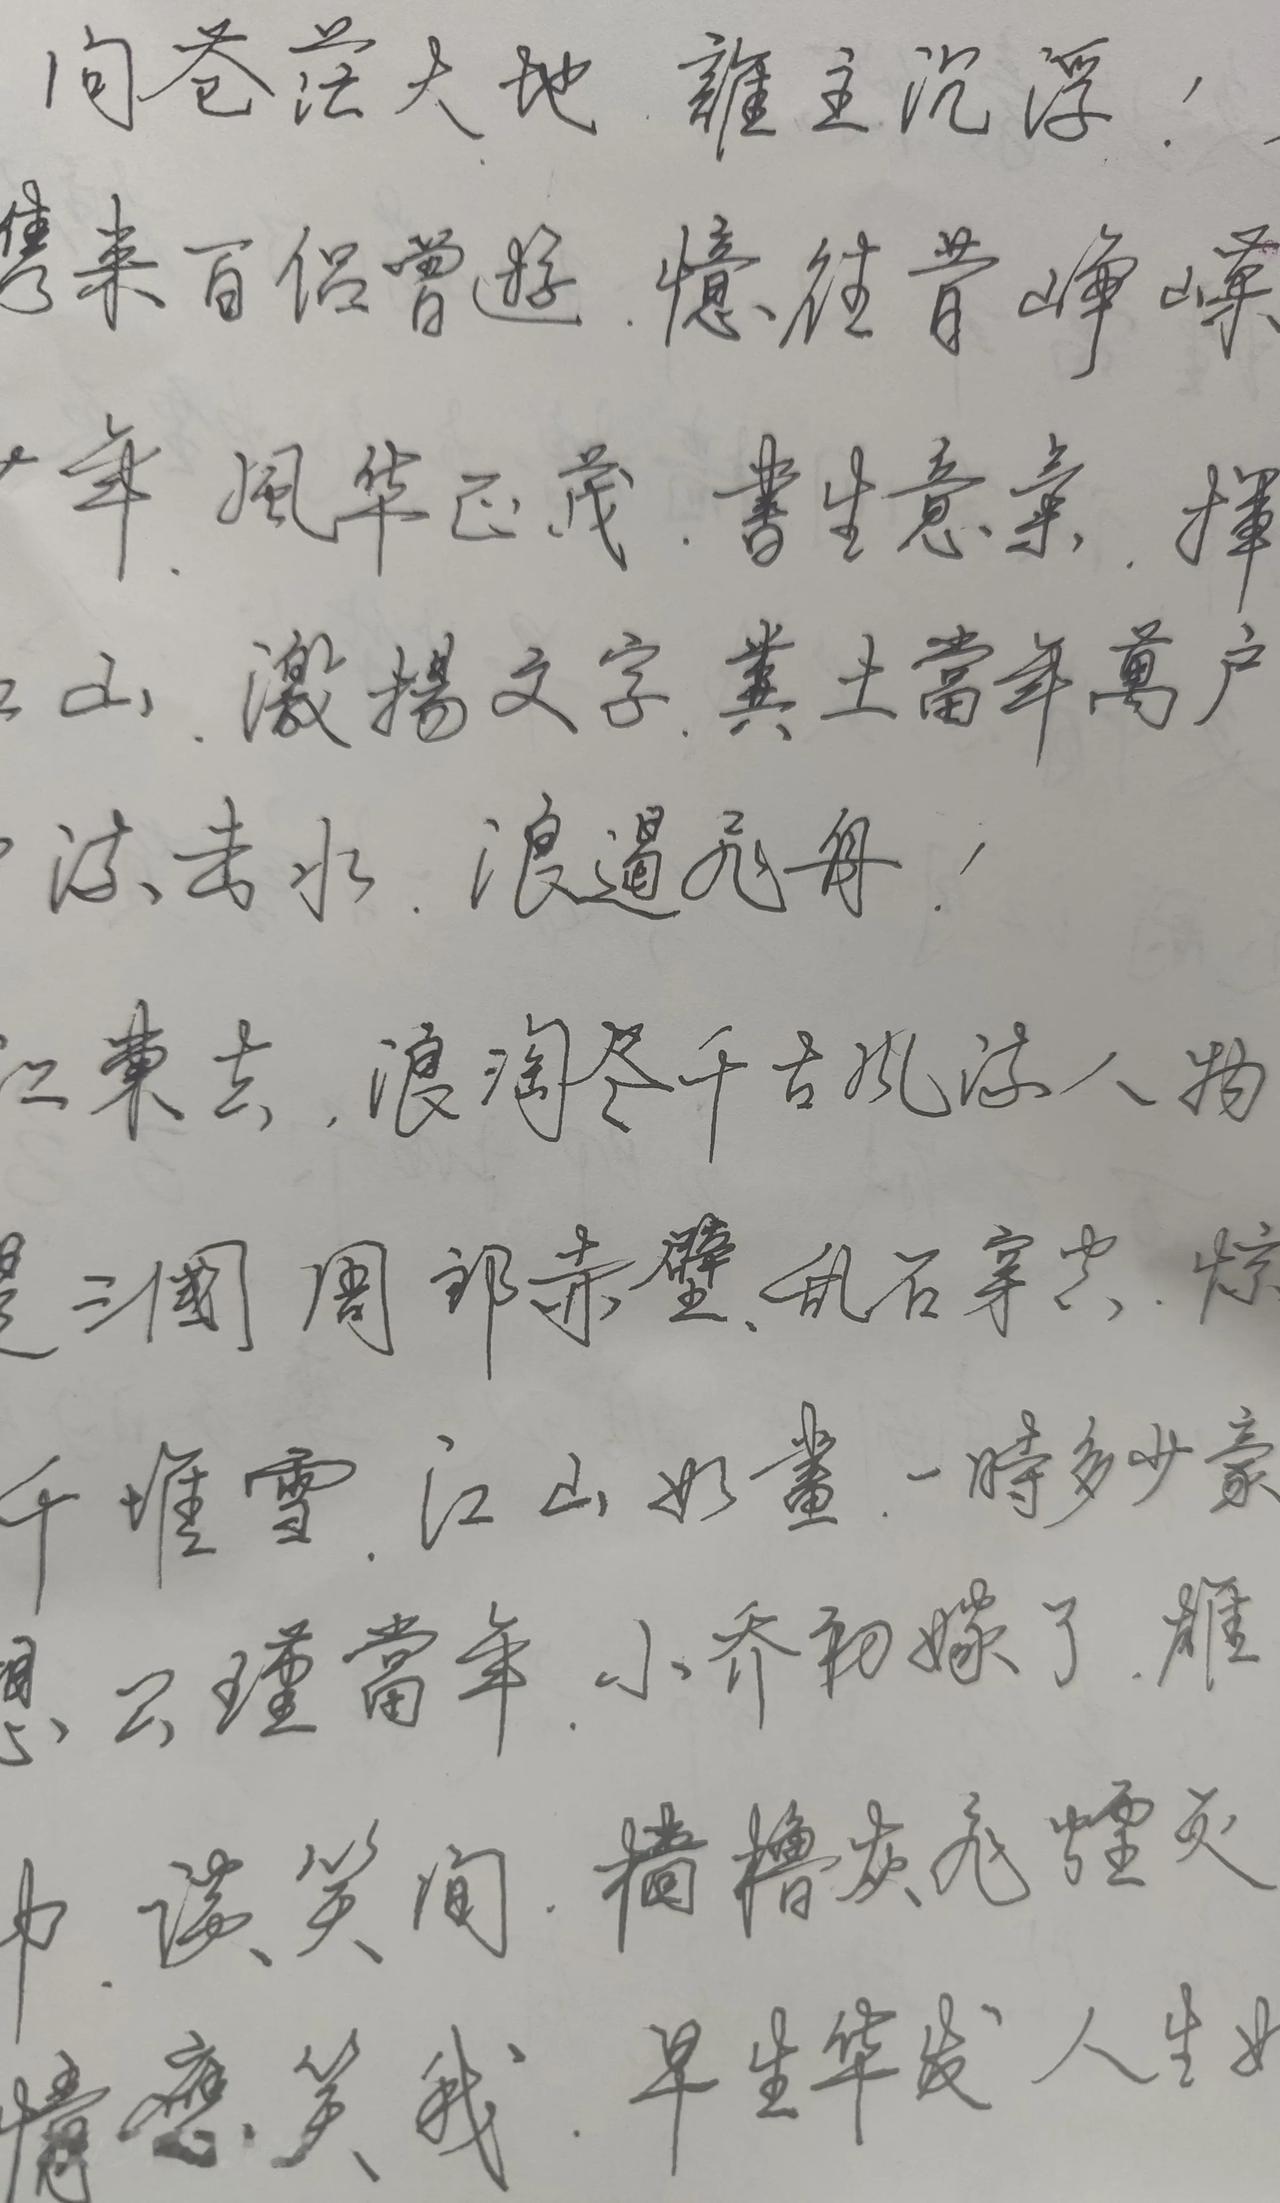 问苍茫大地.誰主沉浮!
隽来百侣曾遊.憶往昔峥嵘
年.風华正茂.書生意氣.揮
山.激揚文字.糞土當年萬户
流击水.浪遏飛舟!
江東去.浪淘尽千古风流人物
是三國周郎赤壁.乱石穿空.惊
千堆雪.江山如畫.一時多少豪
想公瑾當年.小乔初嫁了.雄
巾.談笑间.樯櫓灰飛煙灭
情應笑我.早生华发人生如